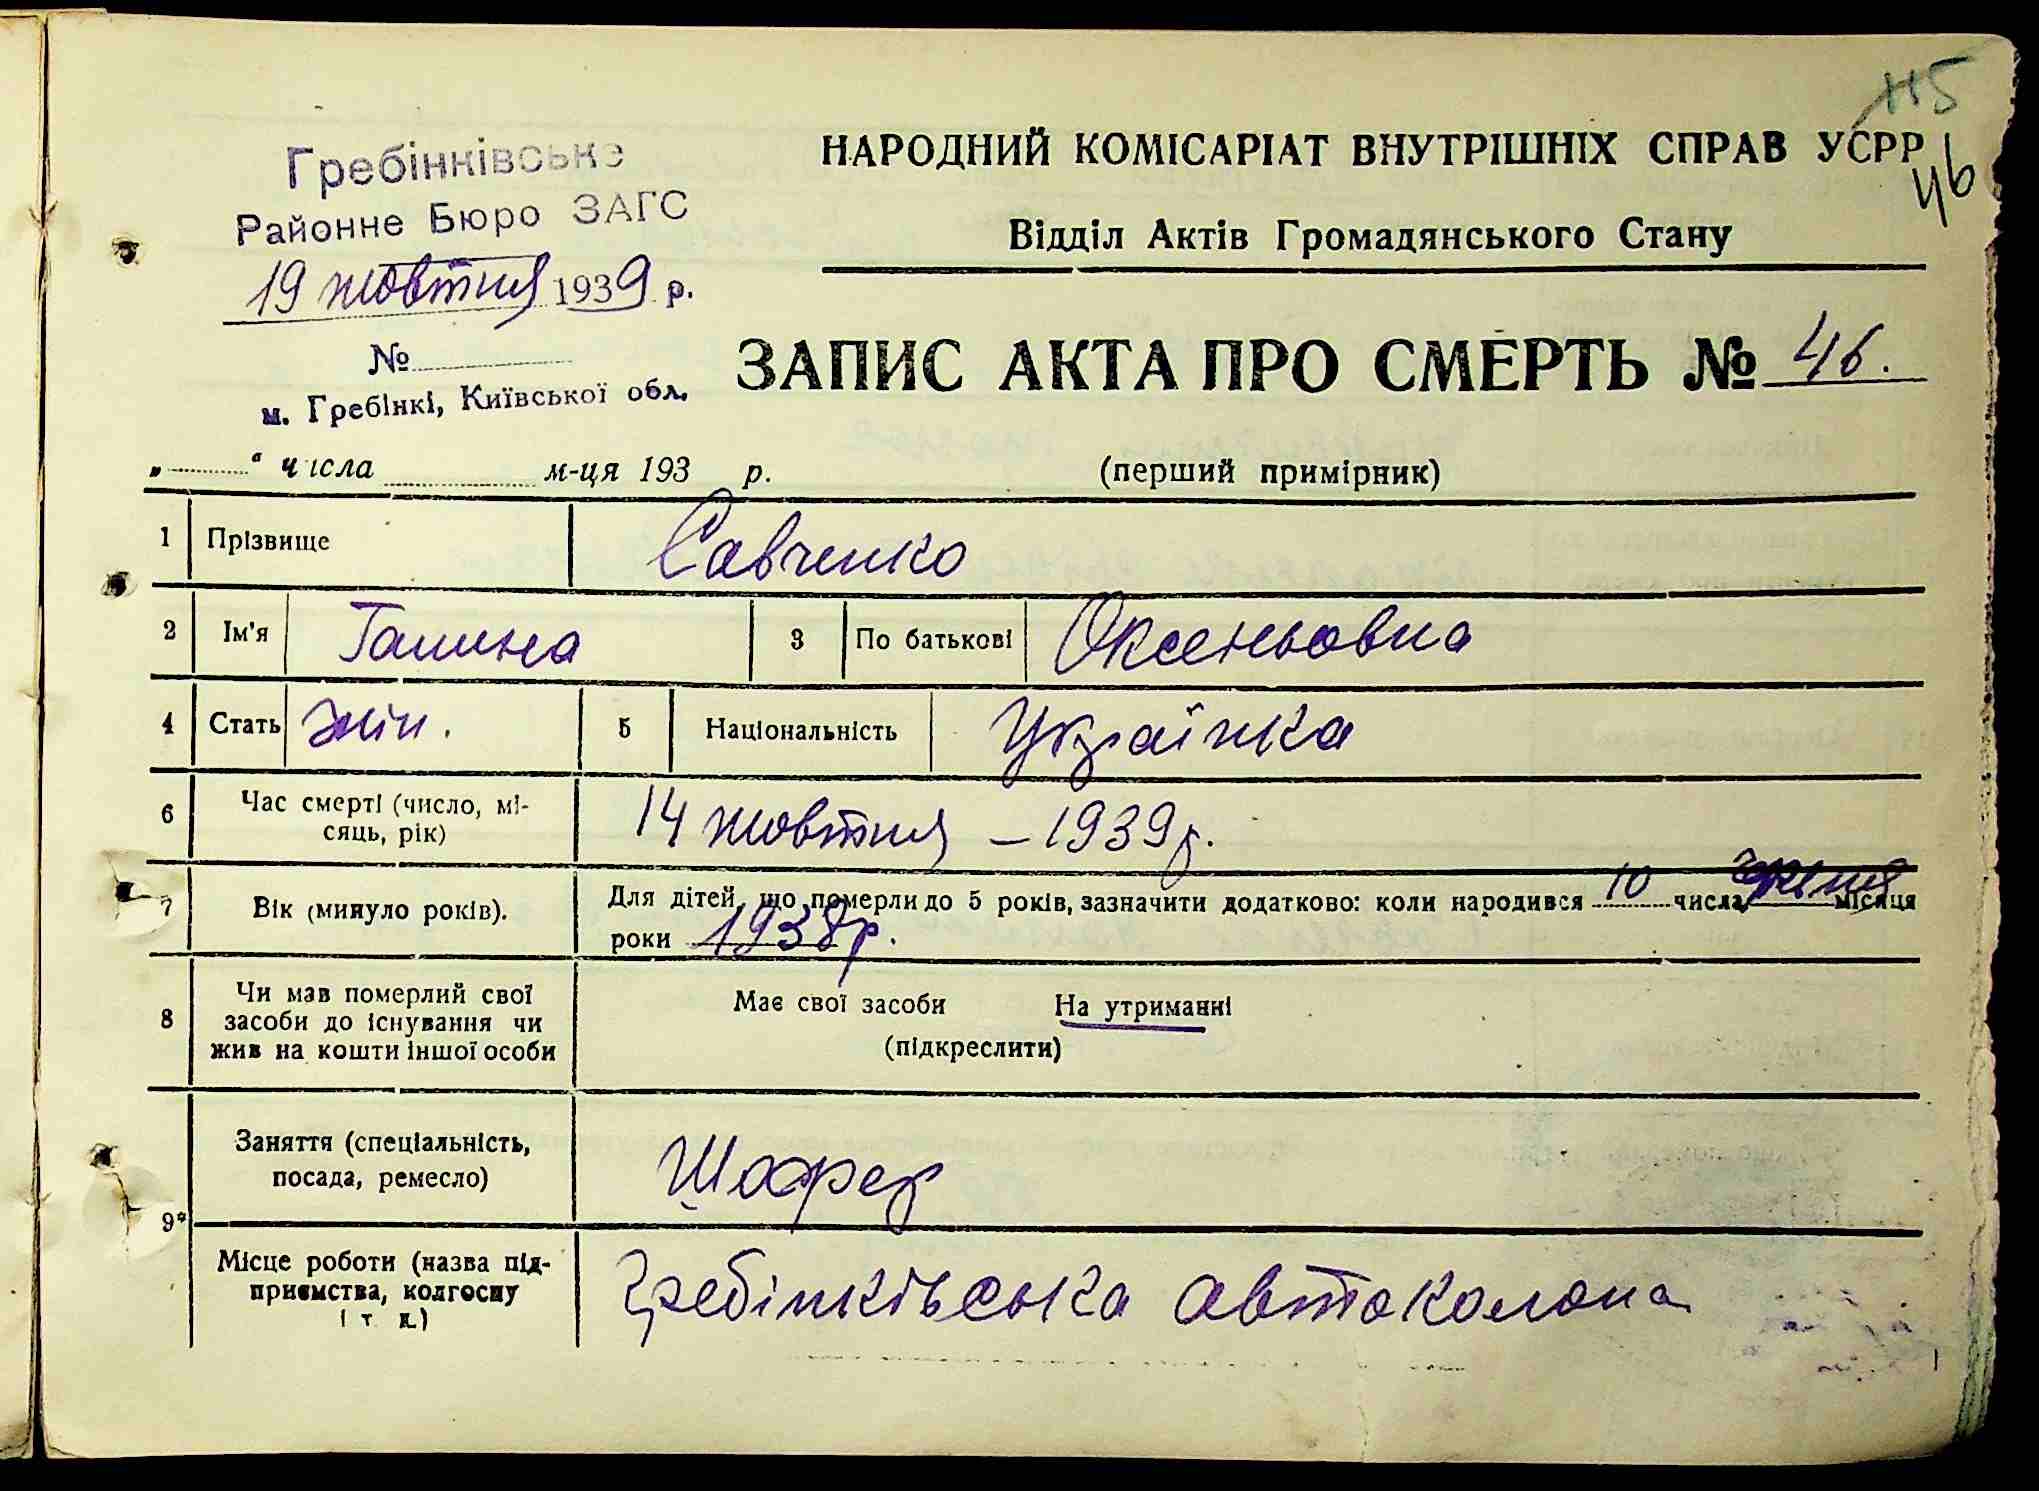 115
46
Гребінківське
Районне Бюро ЗАГС
19 жовтня 1939 р.
№
м. Гребінкі, Київської обл.
НАРОДНИЙ КОМІСАРІАТ ВНУТРІШНІХ СПРАВ УСРР
Відділ Актів Громадянського Стану
ЗАПИС АКТА ПРО СМЕРТЬ № 46.
„ “ числа м-ця 193 р. (перший примірник)
1 Прізвище Савченко
2 Ім'я Галина 3 По батькові Оксеньовна
4 Стать жін. 5 Національність Українка
6 Час смерті (число, мі-
сяць, рік) 14 жовтня – 1939 р.
7 Вік (минуло років). Для дітей, що померли до 5 років, зазначити додатково: коли народився 10 числа місяця
роки 1938 р.
8 Чи мав померлий свої
засоби до існування чи
жив на кошти іншої особи
Має свої засоби На утриманні
(підкреслити)
9* Заняття (спеціальність,
посада, ремесло) Шофер
Місце роботи (назва під-
приємства, колгоспу
і т. д.) Гребінківська автоколона